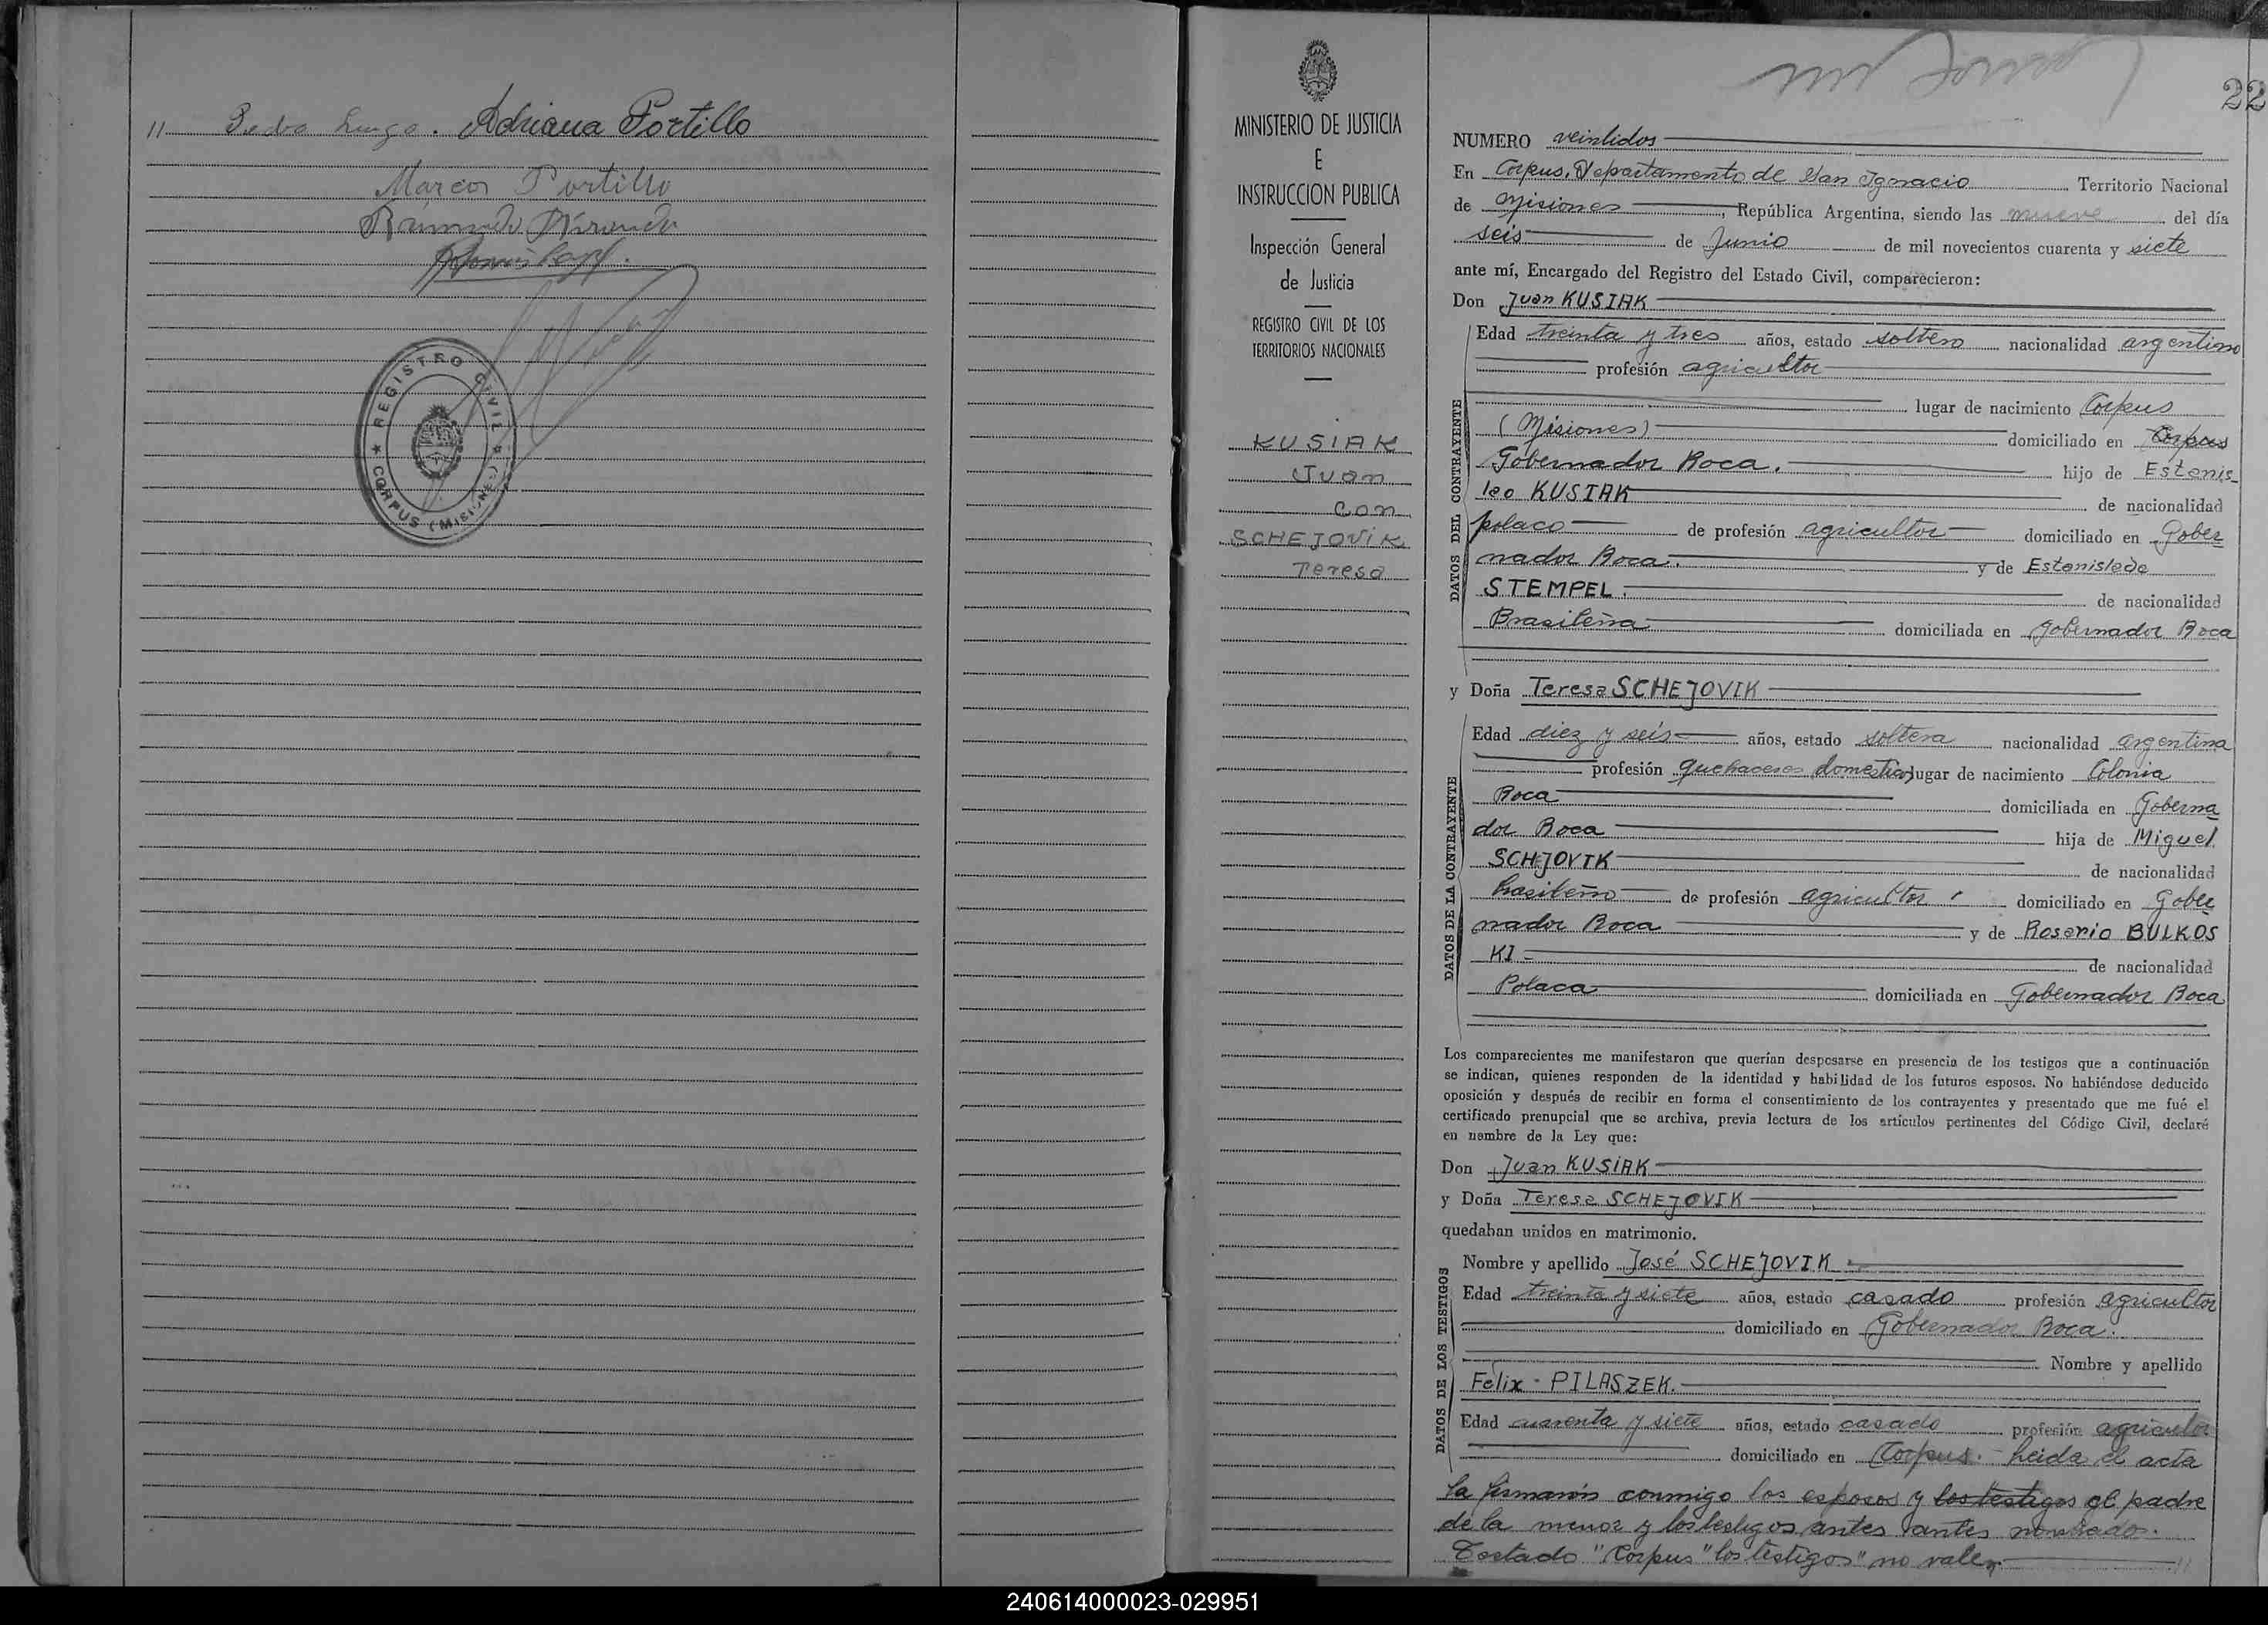 11 Pedro Lugo. Adriana Portillo
Marcos Portillo
Raimundo Miranda
REGISTRO CIVIL
CORPUS (MISIONES)
MINISTERIO DE JUSTICIA
E
INSTRUCCION PUBLICA
Inspección General
de Justicia
REGISTRO CIVIL DE LOS
TERRITORIOS NACIONALES
KUSIAK
Juan
con
SCHEJOVIK
Teresa
22
NUMERO veintidos
En Corpus, Departamento de San Ignacio Territorio Nacional
de Misiones, República Argentina, siendo las nueve del día
seis de Junio de mil novecientos cuarenta y siete
ante mí, Encargado del Registro del Estado Civil, comparecieron:
Don Juan KUSIAK
DATOS DEL CONTRAYENTE
Edad treinta y tres años, estado soltero nacionalidad argentino
profesión agricultor
lugar de nacimiento Corpus
(Misiones) domiciliado en Corpus
Gobernador Roca. hijo de Estanis
lao KUSIAK de nacionalidad
polaco de profesión agricultor domiciliado en Gober
nador Roca. y de Estanislada
STEMPEL. de nacionalidad
Brasileña domiciliada en Gobernador Roca
y Doña Teresa SCHEJOVIK
DATOS DE LA CONTRAYENTE
Edad diez y seis años, estado soltera nacionalidad argentina
profesión quehaceres domesticos lugar de nacimiento Colonia
Roca domiciliada en Goberna
dor Roca hija de Miguel
SCHEJOVIK de nacionalidad
brasileño de profesión agricultor domiciliado en Gober
nador Roca y de Rosario BULKOS
KI - de nacionalidad
Polaca domiciliada en Gobernador Roca
Los comparecientes me manifestaron que querían desposarse en presencia de los testigos que a continuación
se indican, quienes responden de la identidad y habilidad de los futuros esposos. No habiéndose deducido
oposición y después de recibir en forma el consentimiento de los contrayentes y presentado que me fué el
certificado prenupcial que se archiva, previa lectura de los artículos pertinentes del Código Civil, declaré
en nombre de la Ley que:
Don Juan KUSIAK
y Doña Teresa SCHEJOVIK
quedaban unidos en matrimonio.
DATOS DE LOS TESTIGOS
Nombre y apellido José SCHEJOVIK
Edad treinta y siete años, estado casado profesión agricultor
domiciliado en Gobernador Roca.
Nombre y apellido
Félix - PILASZEK.
Edad cuarenta y siete años, estado casado profesión agricultor
domiciliado en Corpus. - Leida el acta
la firmaron conmigo los esposos y los testigos el padre
de la menor y los testigos antes antes nombrados.
Testado "Corpus" "los testigos" no vale. 11
240614000023-029951